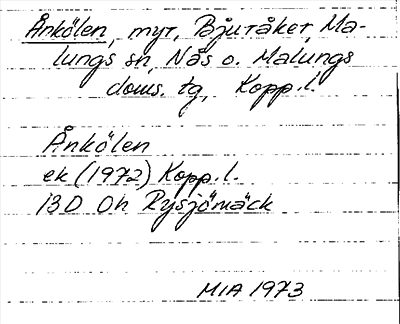 Ånkölen, myr, Bjuråker, Ma-
lungs sn, Nås o. Malungs
doms. tg, Kopp. l.
Ånkölen
ek (1972) Kopp. l.
13D 0h Rysjömäck
MIA 1973